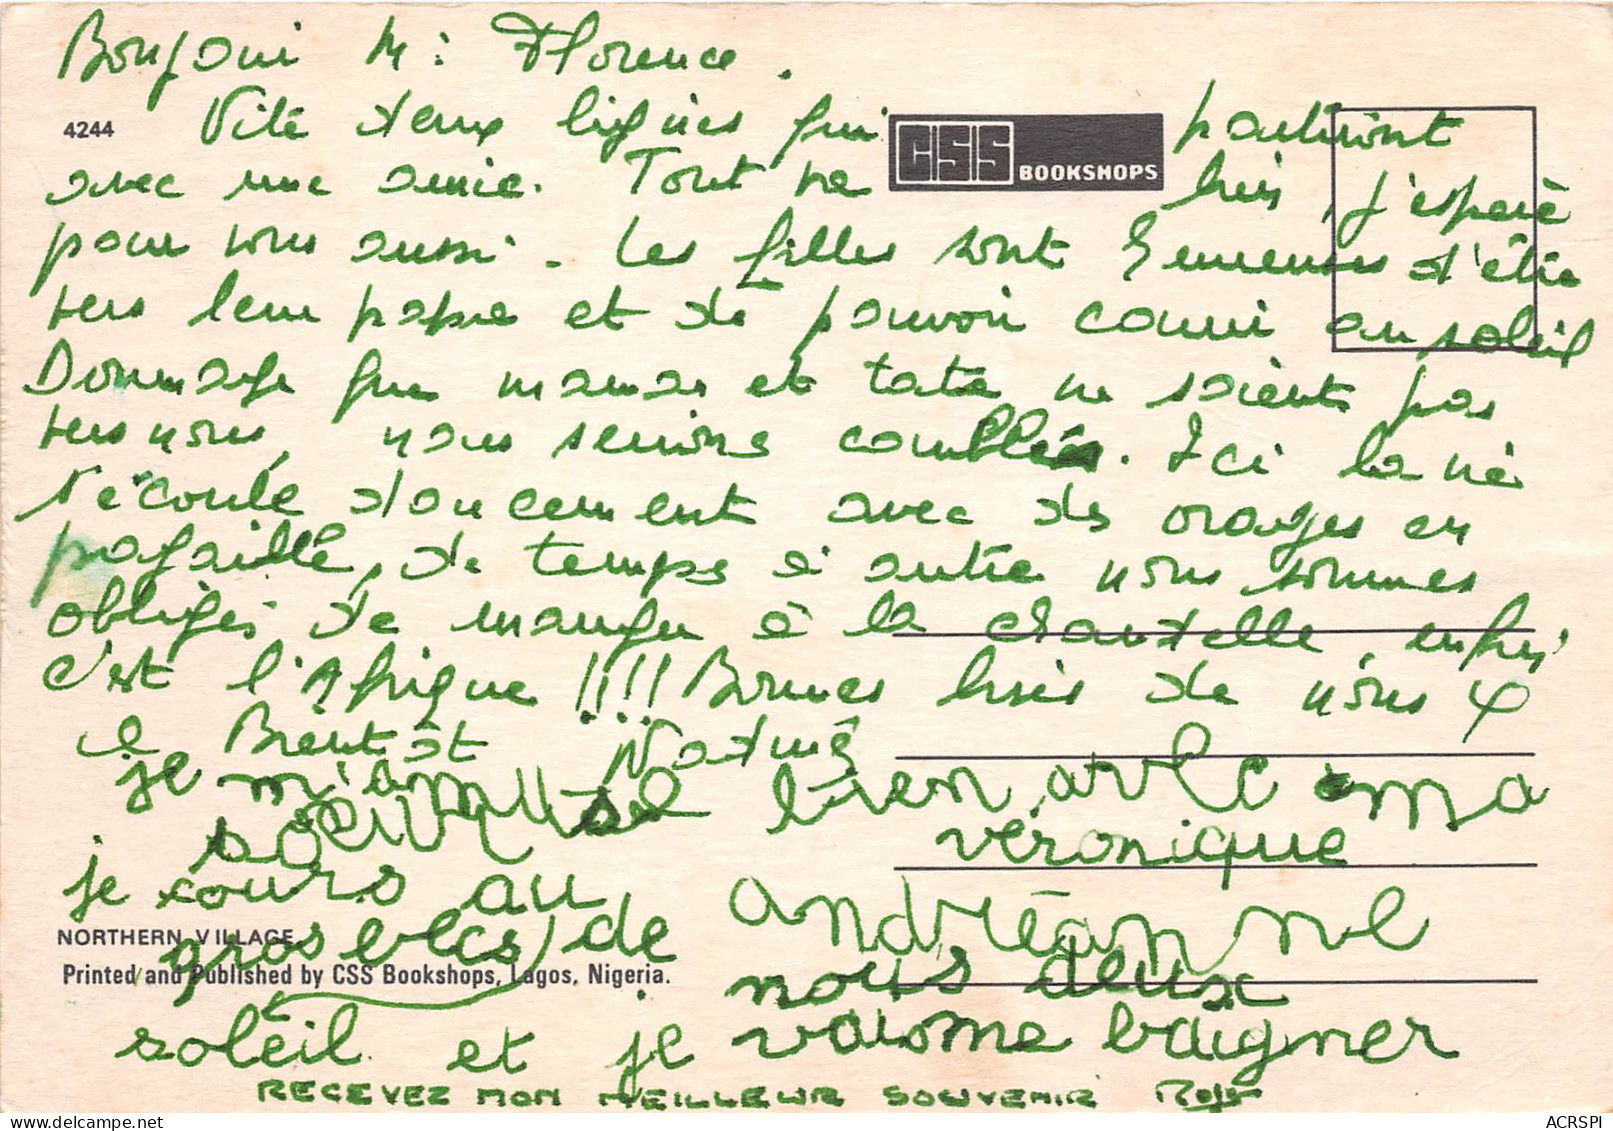 Bonjour M: Florence.
4244 Vite deux lignes qui CSS BOOKSHOPS partiront
avec une amie. Tout va bien, j'espère
pour vous aussi. Les filles sont heureuses d'être
vers leur papa et de pouvoir courir au soleil
Dommage que maman et tata ne soient pas
vers nous, nous serions comblés. Ici la vie
s'écoule doucement avec des orages en
pagaille, de temps à autre nous sommes
obligés de manger à la chandelle, enfin
c'est l'Afrique !!!! Bonnes bises de nous 4
à Bientôt Nadine
je m'amuse bien avec ma
véronique
je cours au
andréanne
gros de
NORTHERN VILLAGE
Printed and Published by CSS Bookshops, Lagos, Nigeria.
nous deux
soleil et je vais me baigner
RECEVEZ MON MEILLEUR SOUVENIR
ACRSPI